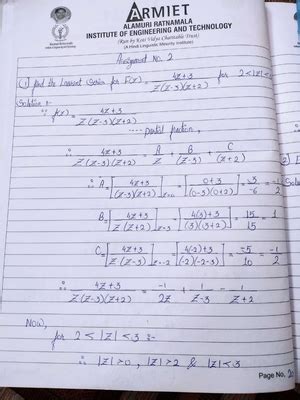 ARMIET
ALAMURI RATNAMALA
INSTITUTE OF ENGINEERING AND TECHNOLOGY
(Run by Koti Vidya Charitable Trust)
(A Hindi Linguistic Minority Institute)
Assignment No. 2
① Find the Laurent Series for f(z) = 4z+3 / z(z-3)(z+2) for 2<|z|<3
Solution :-
f(z) = 4z+3 / z(z-3)(z+2)
.... partial fraction,
∴ 4z+3 / z(z-3)(z+2) = A/z + B/(z-3) + C/(z+2)
∴ A = [4z+3 / (z-3)(z+2)]z=0 = [0+3 / (0-3)(0+2)] = 3/-6 = -1/2
B = [4z+3 / z(z+2)]z=3 = [4(3)+3 / (3)(3+2)] = 15/15 = 1
C = [4z+3 / z(z-3)]z=-2 = [4(-2)+3 / (-2)(-2-3)] = -5/10 = -1/2
∴ 4z+3 / z(z-3)(z+2) = -1/2z + 1/z-3 - 1/z+2
Now,
for 2 < |z| < 3 :-
∴ |z|>0, |z|>2 & |z|<3
Page No. 2